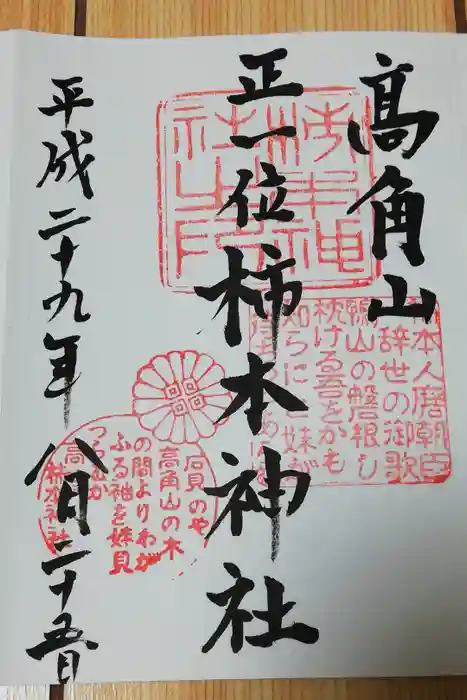 高角山
正一位 柿本神社
平成二十九年 八月二十五日
柿本人麿朝臣
辞世の御歌
鴨山の磐根し
枕ける吾をかも
知らに 妹が
石見のや
高角山の木
の間よりわが
ふる袖を妹見
つらむか
高
柿本神社